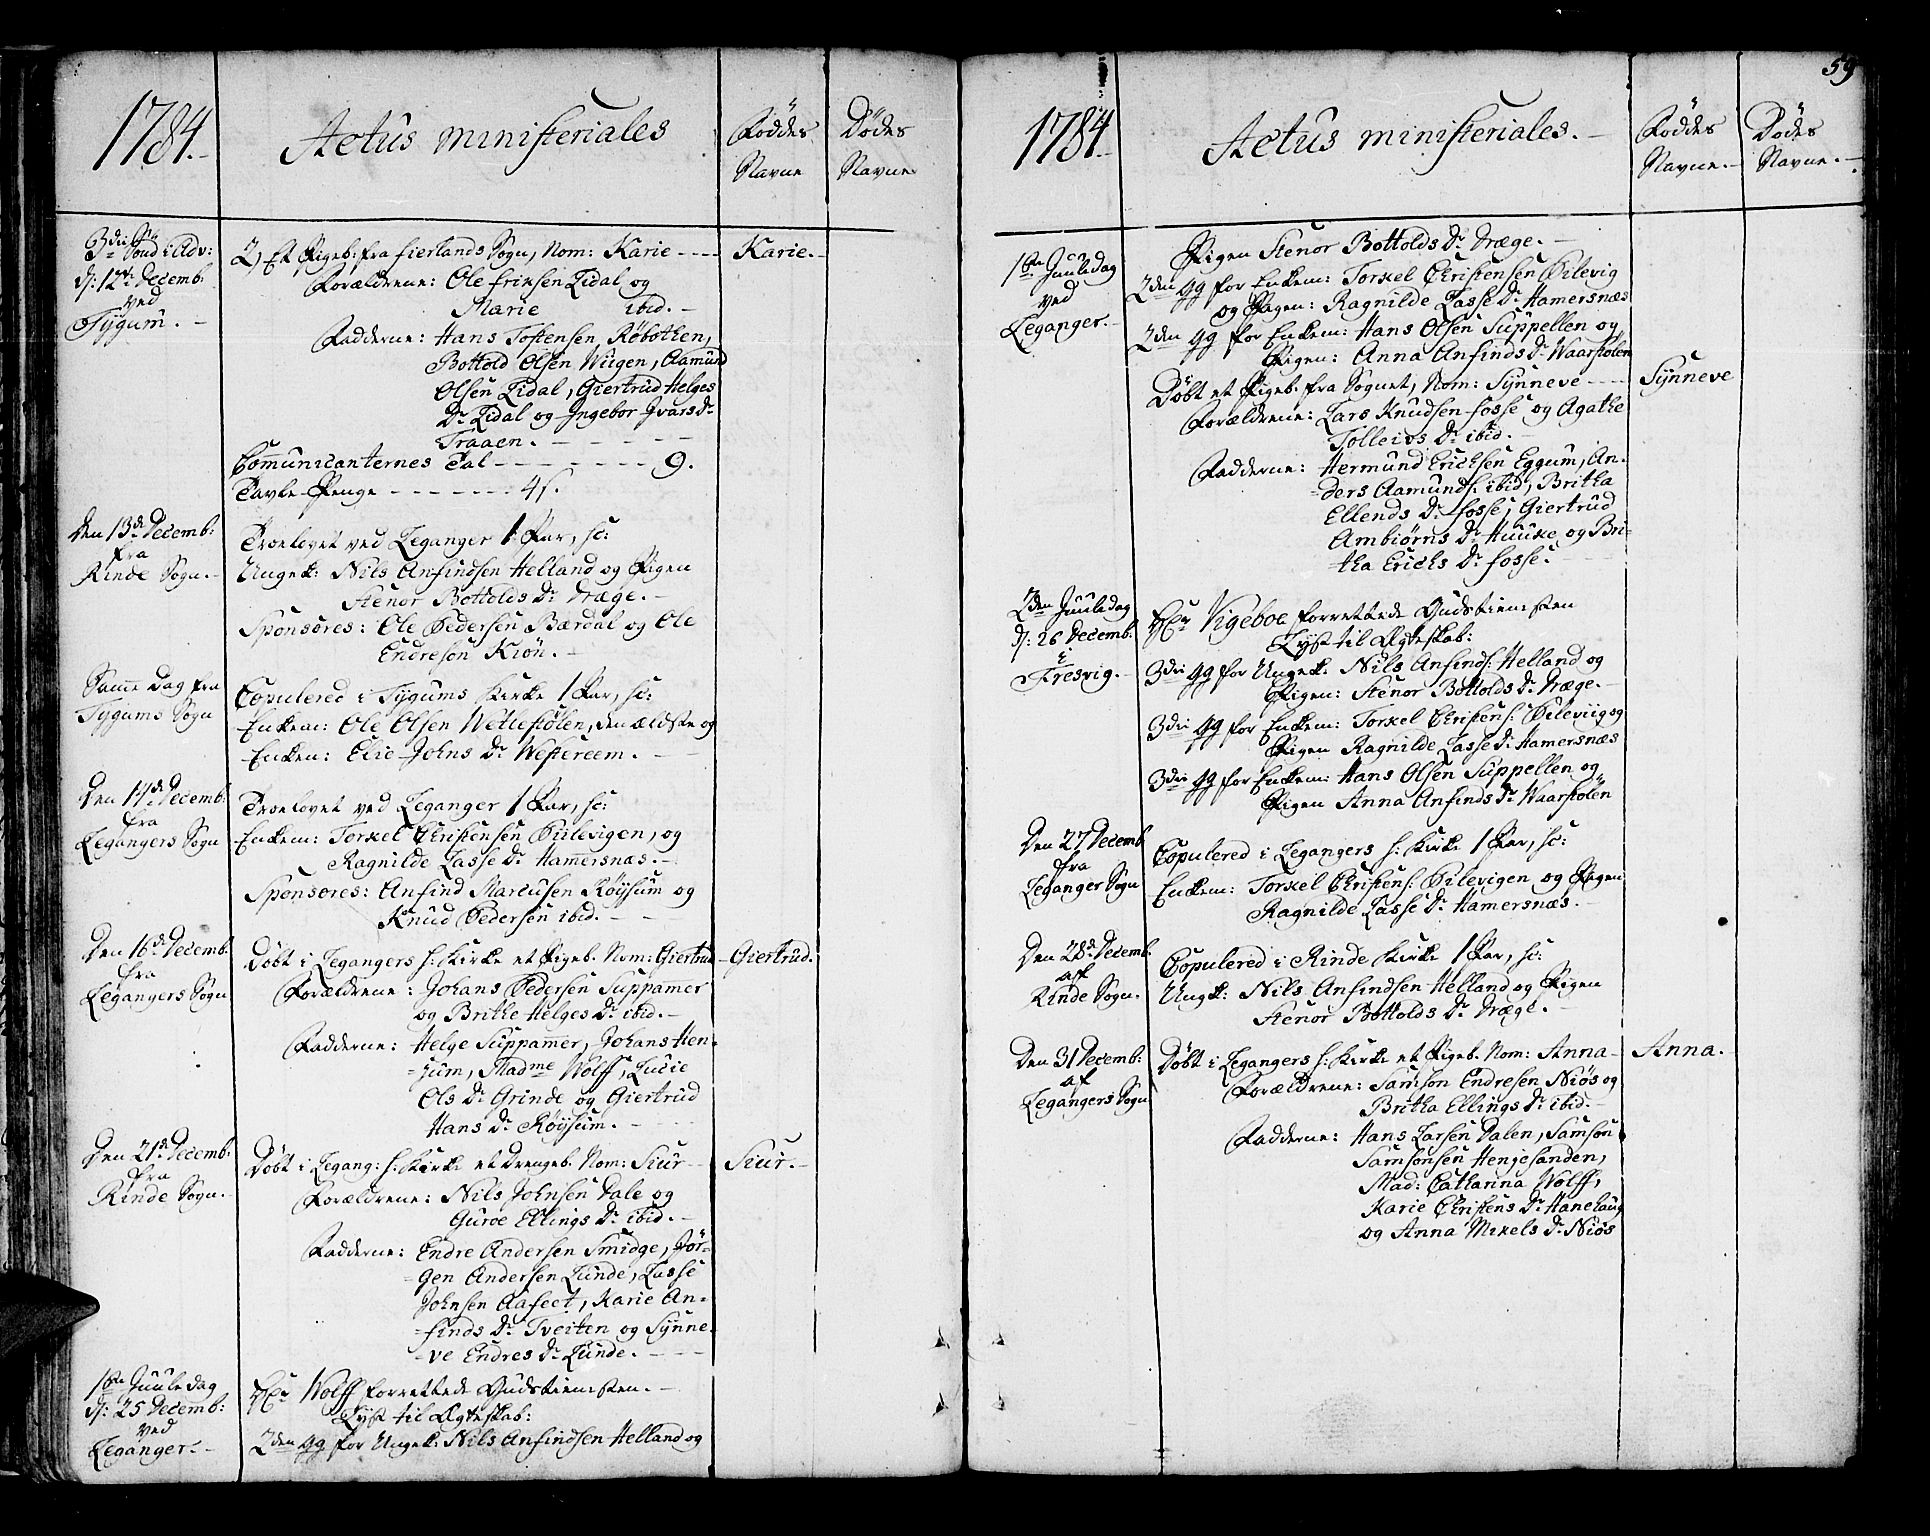 1784.
Actus ministeriales
Föddes Navne
Dödes Navne
3die Sönd: i Adv:
d: 12te Decemb.
ved
Tygum.
2, Et Pigeb. fra Fierlands Sogn, Nom: Karie ---- Karie.
Forældrene: Ole Erichsen Lidal og
Marie ibid.
Fadderne: Hans Tostensen, Röbothen,
Bottold Olsen Wiigen, Aamund
Olsen Lidal, Giertrud Helges
Dr Lidal og Ingebor Ivars Dr
Traaen.
Communicanternes Tal -------- 9.
Tavle-Penge ------- 4 s.
Den 13de Decemb:
fra
Rinde Sogn.
Troelovet ved Leganger 1 Par, sc:
Ungek: Nils Anfindsen Helland og Pigen
Stenor Bottolds Dr Dræge.
Sponsores: Ole Pedersen Bærdal og Ole
Endresen Kiön.
Samme Dag fra
Tygums Sogn
Copulered i Tygums Kirke 1 Par, sc:
Enkem: Ole Olsen Wetlestölen, den ældste og
Enken: Elie Johns Dr Westereem.
Den 14de Decemb:
fra
Legangers Sogn
Troelovet ved Leganger 1 Par, sc:
Enkem: Torkel Christensen Pilevigen, og
Ragnilde Lasse Dr Hamersnæs.
Sponsores: Anfind Marcusen Röysum og
Knud Pedersen ibid.
Den 16de Decemb.
fra
Legangers Sogn
Döbt i Legangers H: Kirke et Pigeb. Nom: Giertrud - Giertrud.
Forældrene: Johans Pedersen Suppamer
og Brithe Helges Dr ibid.
Fadderne: Helge Suppamer, Johans Hen-
jum, Madme Wolff, Lucie
Ols Dr Grinde og Giertrud
Hans Dr Röysum.
Den 21de Decemb.
fra
Rinde Sogn.
Döbt i Legang: H: Kirke et Drengeb. Nom: Siur -- Siur.
Forældrene: Nils Johnsen Dale og
Guroe Ellings Dr ibid.
Fadderne: Endre Andersen Smidge, Jör-
gen Andersen Lunde, Lasse
Johnsen Aafeet, Karie An-
finds Dr Tveiten og Synne-
ve Endres Dr Lunde.
1ste Juule dag
d: 25 Decemb:
ved
Leganger.
Hr Wolff forrettede Gudstienesten.
Lyst til Ægteskab:
2den gg for Ungek: Nils Anfindsen Helland og
59
1784
Actus ministeriales.
Föddes Navne.
Dödes Navne.
1ste Juuledag
ved
Leganger.
Pigen Stenor Bottolds Dr Dræge.
2den gg for Enkem: Torkel Christensen Pilevig
og Pigen: Ragnilde Lasse Dr Hamersnæs
2den gg for Enkem: Hans Olsen Suppellen og
Pigen: Anna Anfinds Dr Waarstölen
Döbt et Pigeb. fra Sognet, Nom: Synneve ---- Synneve
Forældrene: Lars Knudsen Fosse og Agathe
Tolleivs Dr ibid.
Fadderne: Hermund Erichsen Eggum, An-
ders Aamunds: ibid, Britha
Ellends Dr Fosse, Giertrud
Ambiörns Dr Huuke og Bri-
tha Erichs Dr Fosse.
2den Juuledag
d: 26 Decemb.
i
Fresvig.
Hr Vigeboe forrettede Gudstienesten
Lyst til Ægteskab:
3die gg for Ungek: Nils Anfinds: Helland og
Pigen: Stenor Bottolds Dr Dræge.
3die gg for Enkem: Torkel Christens: Pileviig og
Pigen Ragnilde Lasse Dr Hamersnæs
3die gg for Enkem: Hans Olsen Suppellen og
Pigen Anna Anfinds Dr Waarstölen
Den 27 Decemb
fra
Leganger Sogn
Copulered i Legangers H: Kirke 1 Par, sc:
Enkem: Torkel Christens: Pilevigen og Pigen
Ragnilde Lasse Dr Hamersnæs.
Den 28de Decemb.
af
Rinde Sogn.
Copulered i Rinde Kirke 1 Par, sc:
Ungk: Nils Anfindsen Helland og Pigen
Stenor Bottolds Dr Dræge.
Den 31 Decemb:
af
Legangers Sogn
Döbt i Legangers H: Kirke et Pigeb. Nom: Anna - Anna.
Forældrene: Samson Endresen Niös og
Britha Ellings Dr ibid.
Fadderne: Hans Larsen Dalen, Samson
Samsonsen Henjesanden,
Mad: Catharina Wolff,
Karie Christens Dr Hanehaug
og Anna Mikels Dr Niös